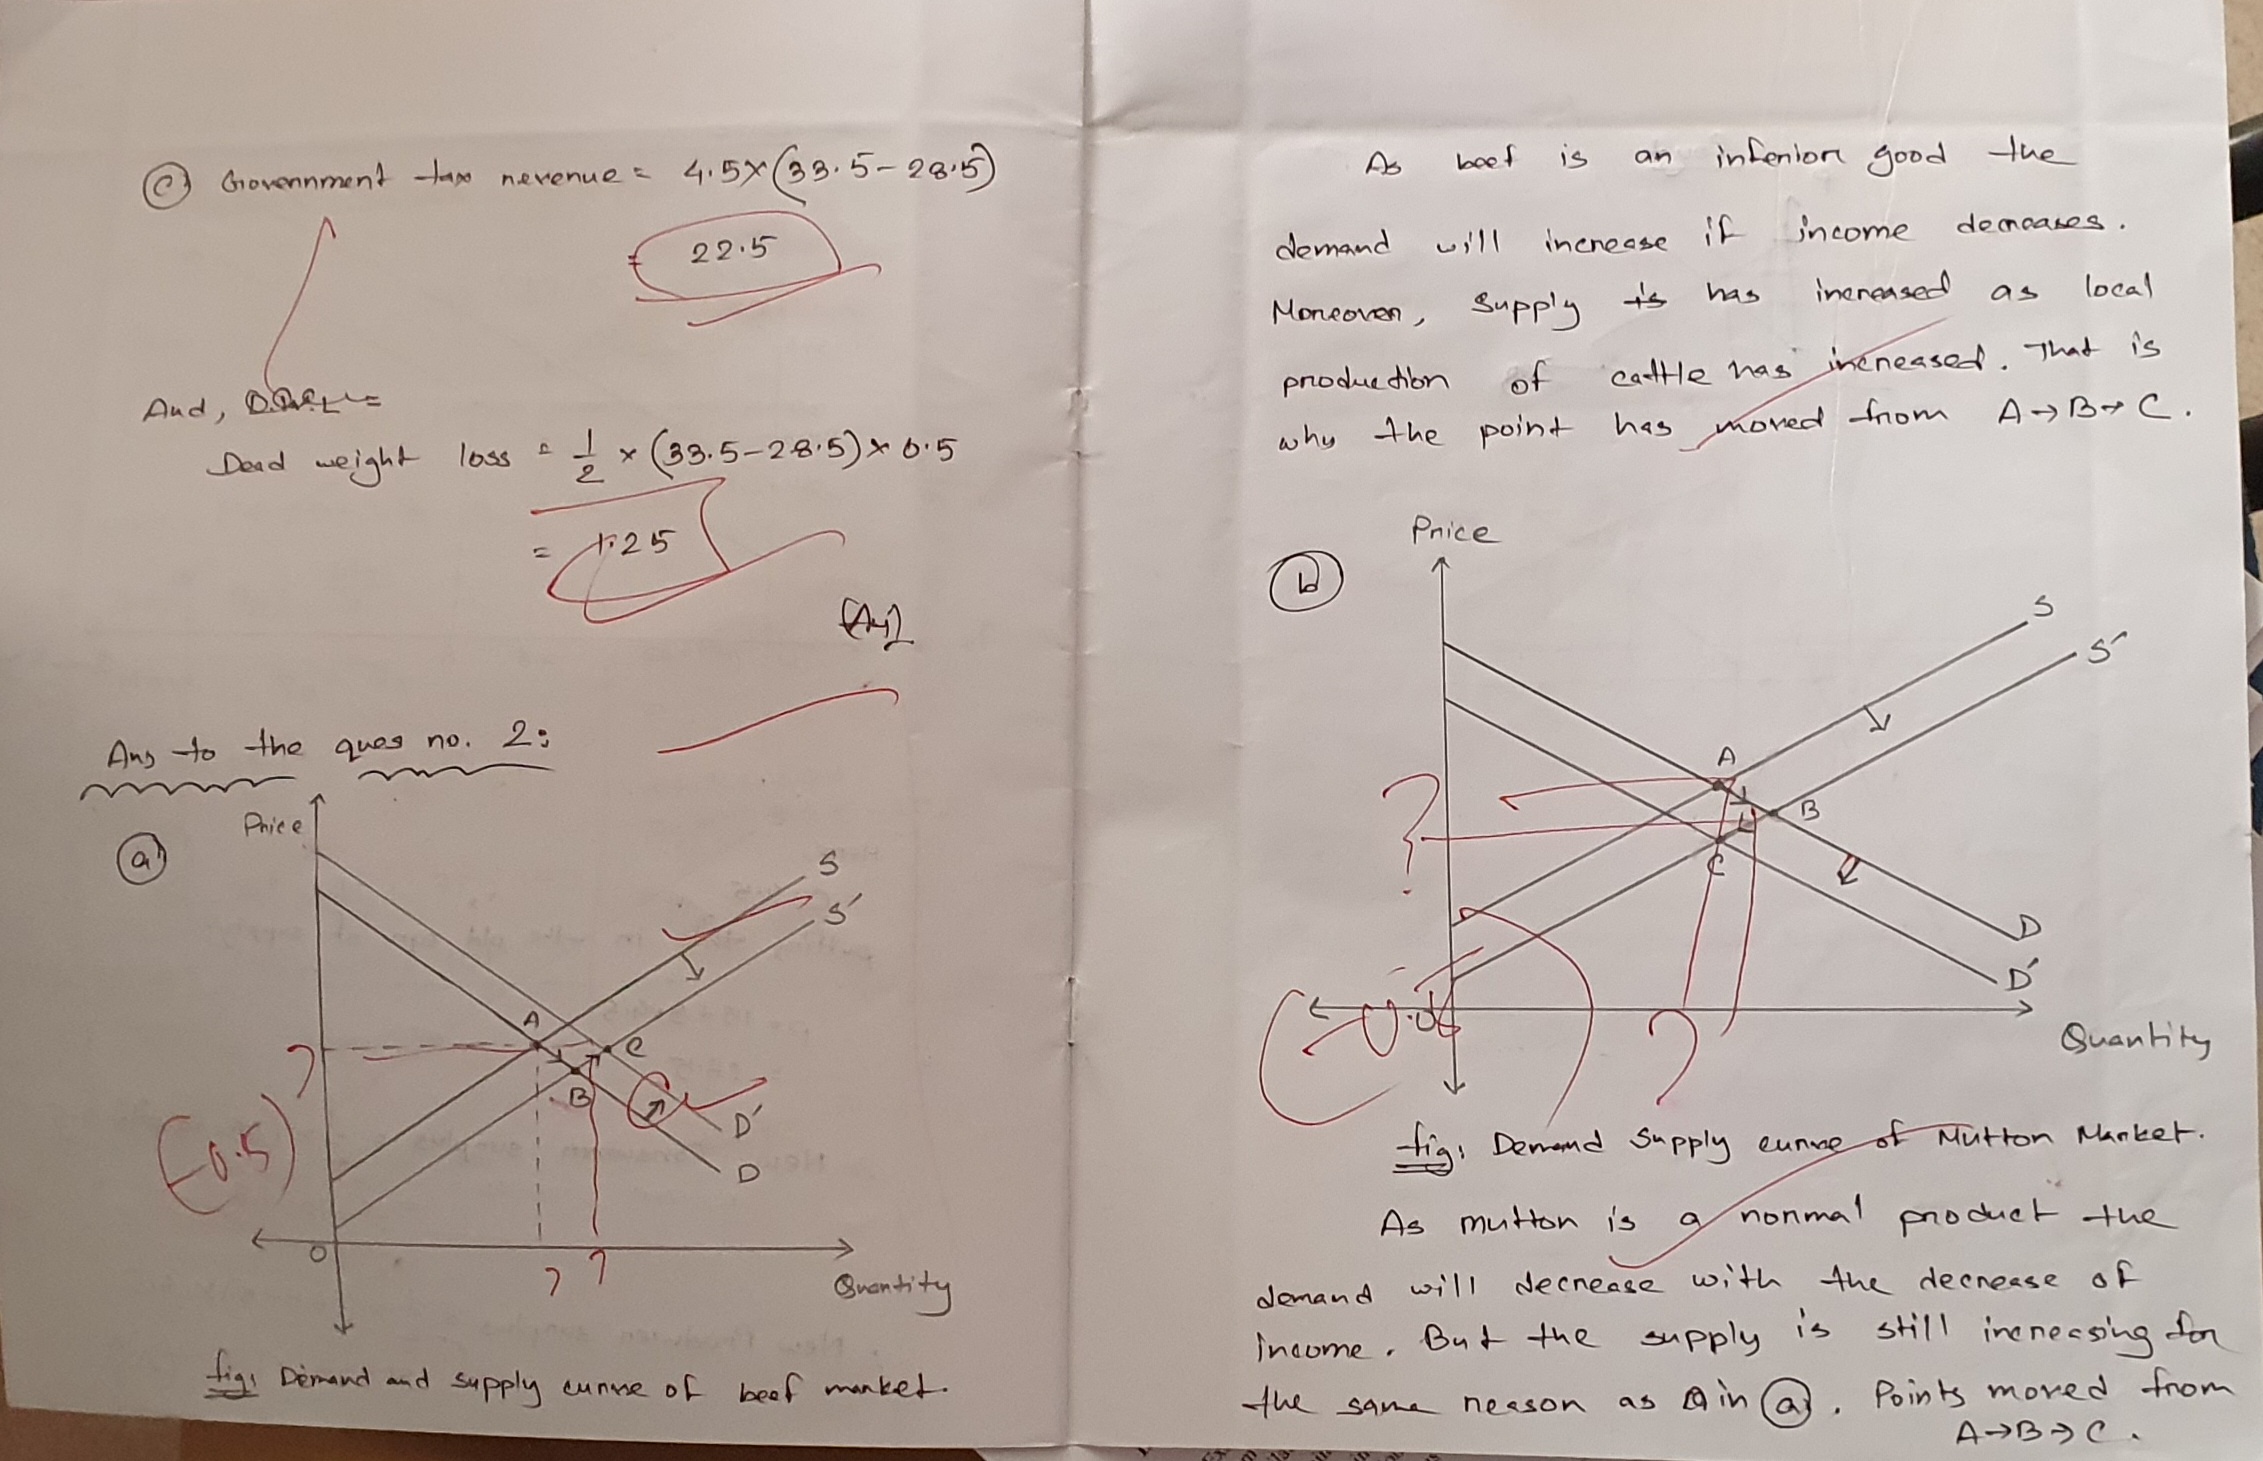 (c) Government tax revenue = 4.5×(33.5-28.5)
= 22.5
And,
Dead weight loss = 1/2 × (33.5-28.5) × 0.5
= 1.25
Ans to the ques no. 2:
(a)
Price
S
S'
A
C
B
D'
D
(-0.5)
?
O
? ?
Quantity
fig: Demand and supply curve of beef market.
As beef is an inferior good the
demand will increase if income decreases.
Moreover, supply is has increased as local
production of cattle has increased. That is
why the point has moved from A→B→C.
(b)
Price
S
S'
A
B
?
C
D
D'
?
Quantity
fig: Demand supply curve of Mutton Market.
As mutton is a normal product the
demand will decrease with the decrease of
income. But the supply is still increasing for
the same reason as in (a). Points moved from
A→B→C.